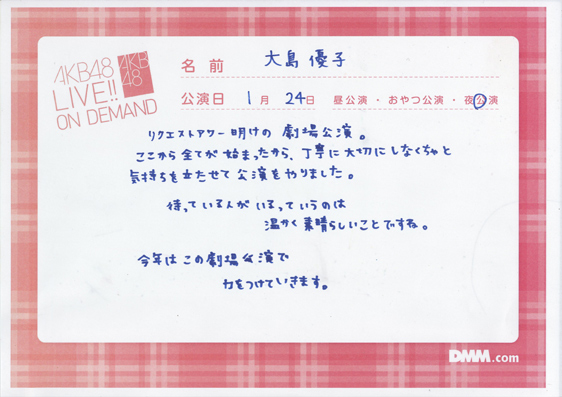 AKB48
LIVE!!
ON DEMAND
AKB
48
名前 大島優子
公演日 1月 24日 昼公演・おやつ公演・夜公演
リクエストアワー明けの劇場公演。
ここから全てが始まったから、丁寧に大切にしなくちゃと
気持ちを立たせて公演をやりました。
待っている人がいるっていうのは
温かく素晴らしいことですね。
今年はこの劇場公演で
力をつけていきます。
DMM.com